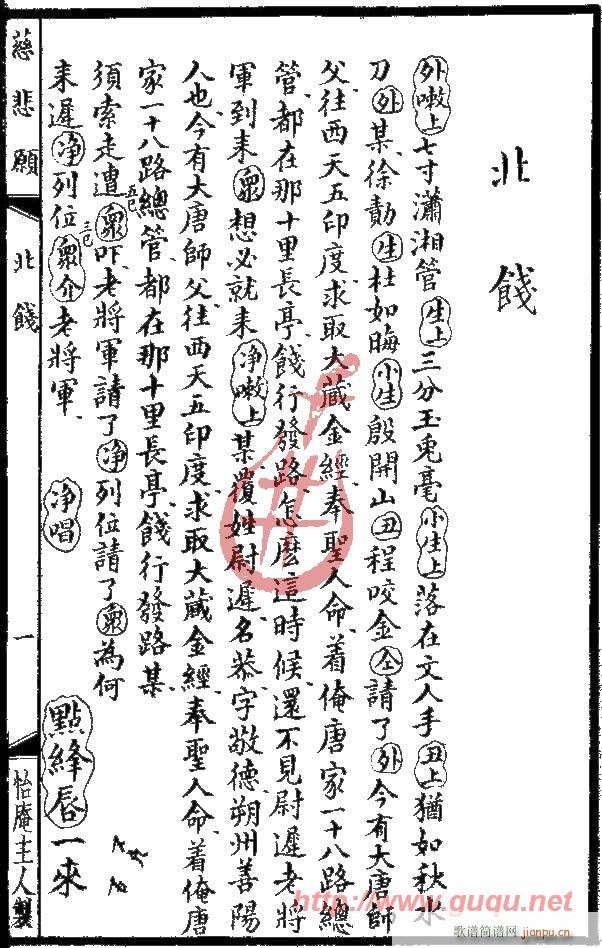 北餞
外嗽上七寸瀟湘管生上三分玉兎毫小生上落在文人手丑上猶如秋水
刀外某徐勣生杜如晦小生殷開山丑程咬金仝請了外今有大唐師
父往西天五印度求取大藏金經奉聖人命着俺唐家一十八路總
管都在那十里長亭餞行發路怎麽這時候還不見尉遲老將
軍到來衆想必就來净嗽上某覆姓尉遲名恭字敬德朔州善陽
人也今有大唐師父往西天五印度求取大藏金經奉聖人命着俺唐
家一十八路總管都在那十里長亭餞行發路某
須索走遭衆吓老將軍請了净列位請了衆為何
来遲净列位衆介老將軍 净唱 點絳唇一來
慈悲願 北餞 一 怡庵主人製
http://www.guqu.net
歌谱简谱网
jianpu.cn